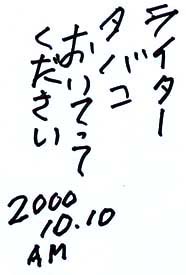 ライター
タバコ
おいてって
ください
2000
10.10
AM